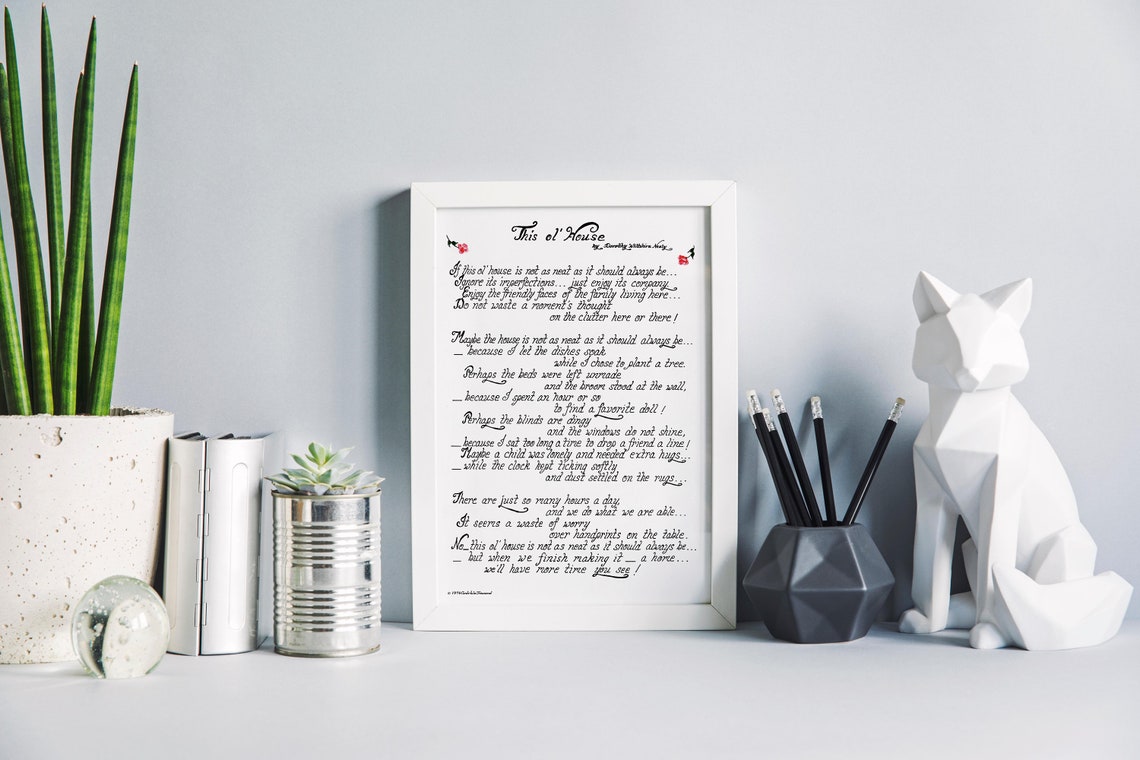 This ol' House
by Dorothy Wiltshire Nealy
If this ol' house is not as neat as it should always be...
Ignore its imperfections... just enjoy its company.
Enjoy the friendly faces of the family living here...
Do not waste a moment's thought
on the clutter here or there!
Maybe the house is not as neat as it should always be...
— because I let the dishes soak
while I chose to plant a tree.
Perhaps the beds were left unmade
and the broom stood at the wall,
— because I spent an hour or so
to find a favorite doll!
Perhaps the blinds are dingy
and the windows do not shine,
— because I sat too long a time to drop a friend a line!
Maybe a child was lonely and needed extra hugs...
— while the clock kept ticking softly
and dust settled on the rugs...
There are just so many hours a day,
and we do what we are able...
It seems a waste of worry
over handprints on the table.
No this ol' house is not as neat as it should always be...
— but when we finish making it — a home...
we'll have more time you see!
© 1974